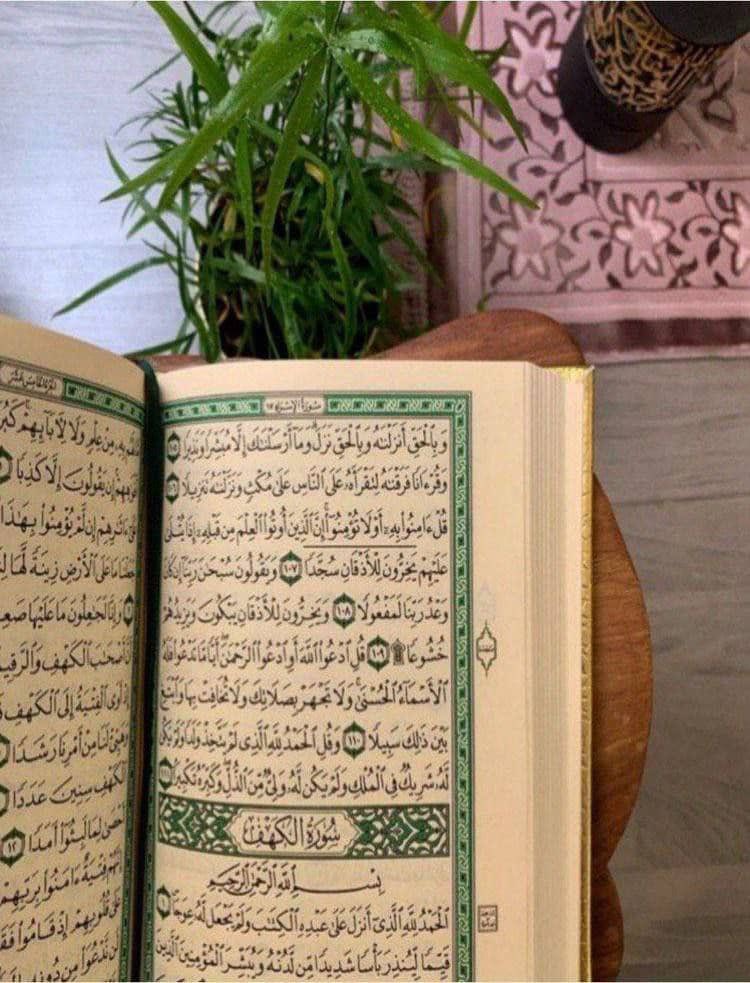 سُورَةُ الإِسْرَاءِ ١٧
وَبِٱلْحَقِّ أَنزَلْنَٰهُ وَبِٱلْحَقِّ نَزَلَ ۗ وَمَآ أَرْسَلْنَٰكَ إِلَّا مُبَشِّرًا وَنَذِيرًا ١٠٥
وَقُرْءَانًا فَرَقْنَٰهُ لِتَقْرَأَهُۥ عَلَى ٱلنَّاسِ عَلَىٰ مُكْثٍ وَنَزَّلْنَٰهُ تَنزِيلًا ١٠٦
قُلْ ءَامِنُوا۟ بِهِۦٓ أَوْ لَا تُؤْمِنُوٓا۟ ۚ إِنَّ ٱلَّذِينَ أُوتُوا۟ ٱلْعِلْمَ مِن قَبْلِهِۦٓ إِذَا يُتْلَىٰ
عَلَيْهِمْ يَخِرُّونَ لِلْأَذْقَانِ سُجَّدًا ١٠٧ وَيَقُولُونَ سُبْحَٰنَ رَبِّنَآ إِن كَانَ
وَعْدُ رَبِّنَا لَمَفْعُولًا ١٠٨ وَيَخِرُّونَ لِلْأَذْقَانِ يَبْكُونَ وَيَزِيدُهُمْ
خُشُوعًا ۩ ١٠٩ قُلِ ٱدْعُوا۟ ٱللَّهَ أَوِ ٱدْعُوا۟ ٱلرَّحْمَٰنَ ۖ أَيًّا مَّا تَدْعُوا۟ فَلَهُ
ٱلْأَسْمَآءُ ٱلْحُسْنَىٰ ۚ وَلَا تَجْهَرْ بِصَلَاتِكَ وَلَا تُخَافِتْ بِهَا وَٱبْتَغِ
بَيْنَ ذَٰلِكَ سَبِيلًا ١١٠ وَقُلِ ٱلْحَمْدُ لِلَّهِ ٱلَّذِى لَمْ يَتَّخِذْ وَلَدًا وَلَمْ يَكُن
لَّهُۥ شَرِيكٌ فِى ٱلْمُلْكِ وَلَمْ يَكُن لَّهُۥ وَلِىٌّ مِّنَ ٱلذُّلِّ ۖ وَكَبِّرْهُ تَكْبِيرًۢا ١١١
سُورَةُ الكَهْفِ
بِسْمِ ٱللَّهِ ٱلرَّحْمَٰنِ ٱلرَّحِيمِ
ٱلْحَمْدُ لِلَّهِ ٱلَّذِىٓ أَنزَلَ عَلَىٰ عَبْدِهِ ٱلْكِتَٰبَ وَلَمْ يَجْعَل لَّهُۥ عِوَجَا ۜ ١
قَيِّمًا لِّيُنذِرَ بَأْسًا شَدِيدًا مِّن لَّدُنْهُ وَيُبَشِّرَ ٱلْمُؤْمِنِينَ ٱلَّذِينَ
الجزء الخامس عشر
لَهُم بِهِۦ مِنْ عِلْمٍ وَلَا لِـَٔابَآئِهِمْ ۚ كَبُرَ
إِن يَقُولُونَ إِلَّا كَذِبًا
ءَاثَٰرِهِمْ إِن لَّمْ يُؤْمِنُوا۟ بِهَٰذَا
مَا عَلَى ٱلْأَرْضِ زِينَةً لَّهَا
وَإِنَّا لَجَٰعِلُونَ مَا عَلَيْهَا صَعِ
أَنَّ أَصْحَٰبَ ٱلْكَهْفِ وَٱلرَّقِي
إِذْ أَوَى ٱلْفِتْيَةُ إِلَى ٱلْكَهْفِ
وَهَيِّئْ لَنَا مِنْ أَمْرِنَا رَشَدًا
ٱلْكَهْفِ سِنِينَ عَدَدًا
أَحْصَىٰ لِمَا لَبِثُوٓا۟ أَمَدًا ١٢
إِنَّهُمْ فِتْيَةٌ ءَامَنُوا۟ بِرَبِّهِمْ
عَلَىٰ قُلُوبِهِمْ إِذْ قَامُوا۟ فَقَ
لَن نَّدْعُوَا۟ مِن دُونِهِۦٓ